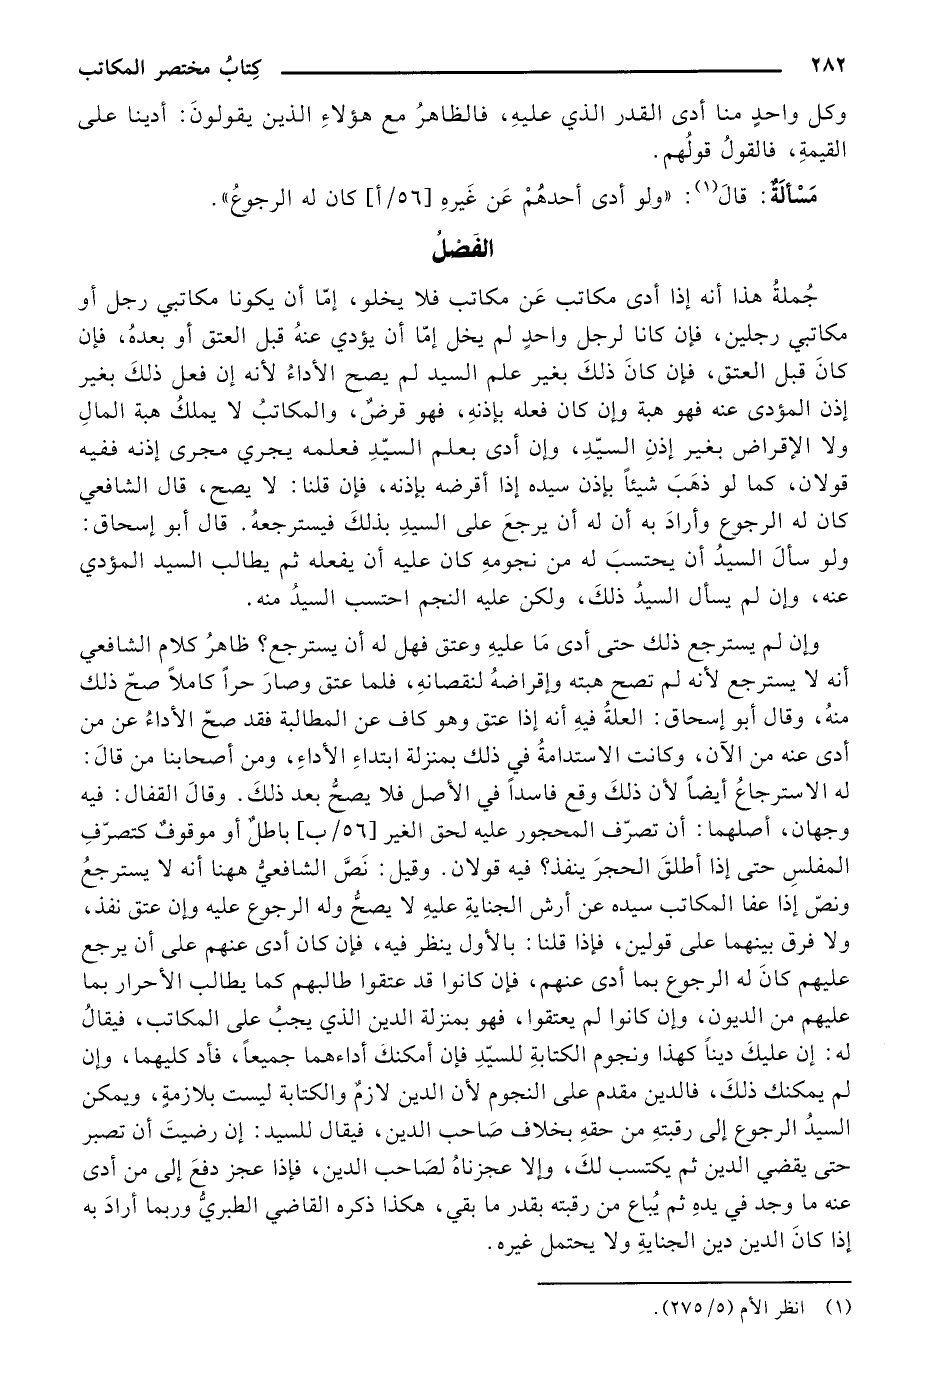 ٢٨٢ كِتابُ مختصر المكاتب
وكل واحدٍ منا أدى القدر الذي عليهِ، فالظاهرُ مع هؤلاءِ الذين يقولونَ: أدينا على
القيمةِ، فالقولُ قولُهم.
مَسْأَلَةٌ: قالَ(١): «ولو أدى أحدهُمْ عَن غَيرهِ [٥٦/ أ] كان له الرجوعُ».
الفَصْلُ
جُملةُ هذا أنه إذا أدى مكاتب عَن مكاتب فلا يخلو، إمّا أن يكونا مكاتبي رجل أو
مكاتبي رجلين، فإن كانا لرجل واحدٍ لم يخل إمّا أن يؤدي عنهُ قبل العتق أو بعدهُ، فإن
كانَ قبل العتق، فإن كانَ ذلكَ بغير علم السيد لم يصح الأداءُ لأنه إن فعل ذلكَ بغير
إذن المؤدى عنه فهو هبة وإن كان فعله بإذنهِ، فهو قرضٌ، والمكاتبُ لا يملكُ هبة المالِ
ولا الإقراض بغير إذنِ السيّدِ، وإن أدى بعلم السيّدِ فعلمه يجري مجرى إذنه ففيه
قولان، كما لو ذهَبَ شيئاً بإذن سيده إذا أقرضه بإذنه، فإن قلنا: لا يصح، قال الشافعي
كان له الرجوع وأرادَ به أن له أن يرجعَ على السيدِ بذلكَ فيسترجعهُ. قال أبو إسحاق:
ولو سألَ السيدُ أن يحتسبَ له من نجومهِ كان عليه أن يفعله ثم يطالب السيد المؤدي
عنه، وإن لم يسأل السيدُ ذلكَ، ولكن عليه النجم احتسب السيدُ منه.
وإن لم يسترجع ذلك حتى أدى مَا عليهِ وعتق فهل له أن يسترجع؟ ظاهرُ كلام الشافعي
أنه لا يسترجع لأنه لم تصح هبته وإقراضهُ لنقصانهِ، فلما عتق وصارَ حراً كاملاً صحّ ذلك
منهُ، وقال أبو إسحاق: العلةُ فيهِ أنه إذا عتق وهو كاف عن المطالبة فقد صحّ الأداءُ عن من
أدى عنه من الآن، وكانت الاستدامةُ في ذلك بمنزلة ابتداءِ الأداءِ، ومن أصحابنا من قالَ:
له الاسترجاعُ أيضاً لأن ذلكَ وقع فاسداً في الأصل فلا يصحُّ بعد ذلكَ. وقالَ القفال: فيه
وجهان، أصلهما: أن تصرّف المحجور عليه لحق الغير [٥٦/ ب] باطلٌ أو موقوفٌ كتصرّفِ
المفلسِ حتى إذا أطلقَ الحجرَ ينفذ؟ فيه قولان. وقيل: نَصَّ الشافعيُّ ههنا أنه لا يسترجعُ
ونصّ إذا عفا المكاتب سيده عن أرش الجنايةِ عليهِ لا يصحُّ وله الرجوع عليه وإن عتق نفذ،
ولا فرق بينهما على قولين، فإذا قلنا: بالأول ينظر فيه، فإن كان أدى عنهم على أن يرجع
عليهم كانَ له الرجوع بما أدى عنهم، فإن كانوا قد عتقوا طالبهم كما يطالب الأحرار بما
عليهم من الديون، وإن كانوا لم يعتقوا، فهو بمنزلة الدين الذي يجبُ على المكاتب، فيقالُ
له: إن عليكَ ديناً كهذا ونجوم الكتابة للسيّدِ فإن أمكنكَ أداءهما جميعاً، فأد كليهما، وإن
لم يمكنك ذلكَ، فالدين مقدم على النجوم لأن الدين لازمٌ والكتابة ليست بلازمةٍ، ويمكن
السيدُ الرجوع إلى رقبتهِ من حقهِ بخلاف صَاحب الدين، فيقال للسيد: إن رضيتَ أن تصبر
حتى يقضي الدين ثم يكتسب لكَ، وإلا عجزناهُ لصَاحب الدين، فإذا عجز دفعَ إلى من أدى
عنه ما وجد في يدهِ ثم يُباع من رقبته بقدر ما بقي، هكذا ذكره القاضي الطبريُّ وربما أرادَ به
إذا كانَ الدين دين الجنايةِ ولا يحتمل غيره.
(١) انظر الأم (٥/ ٢٧٥).